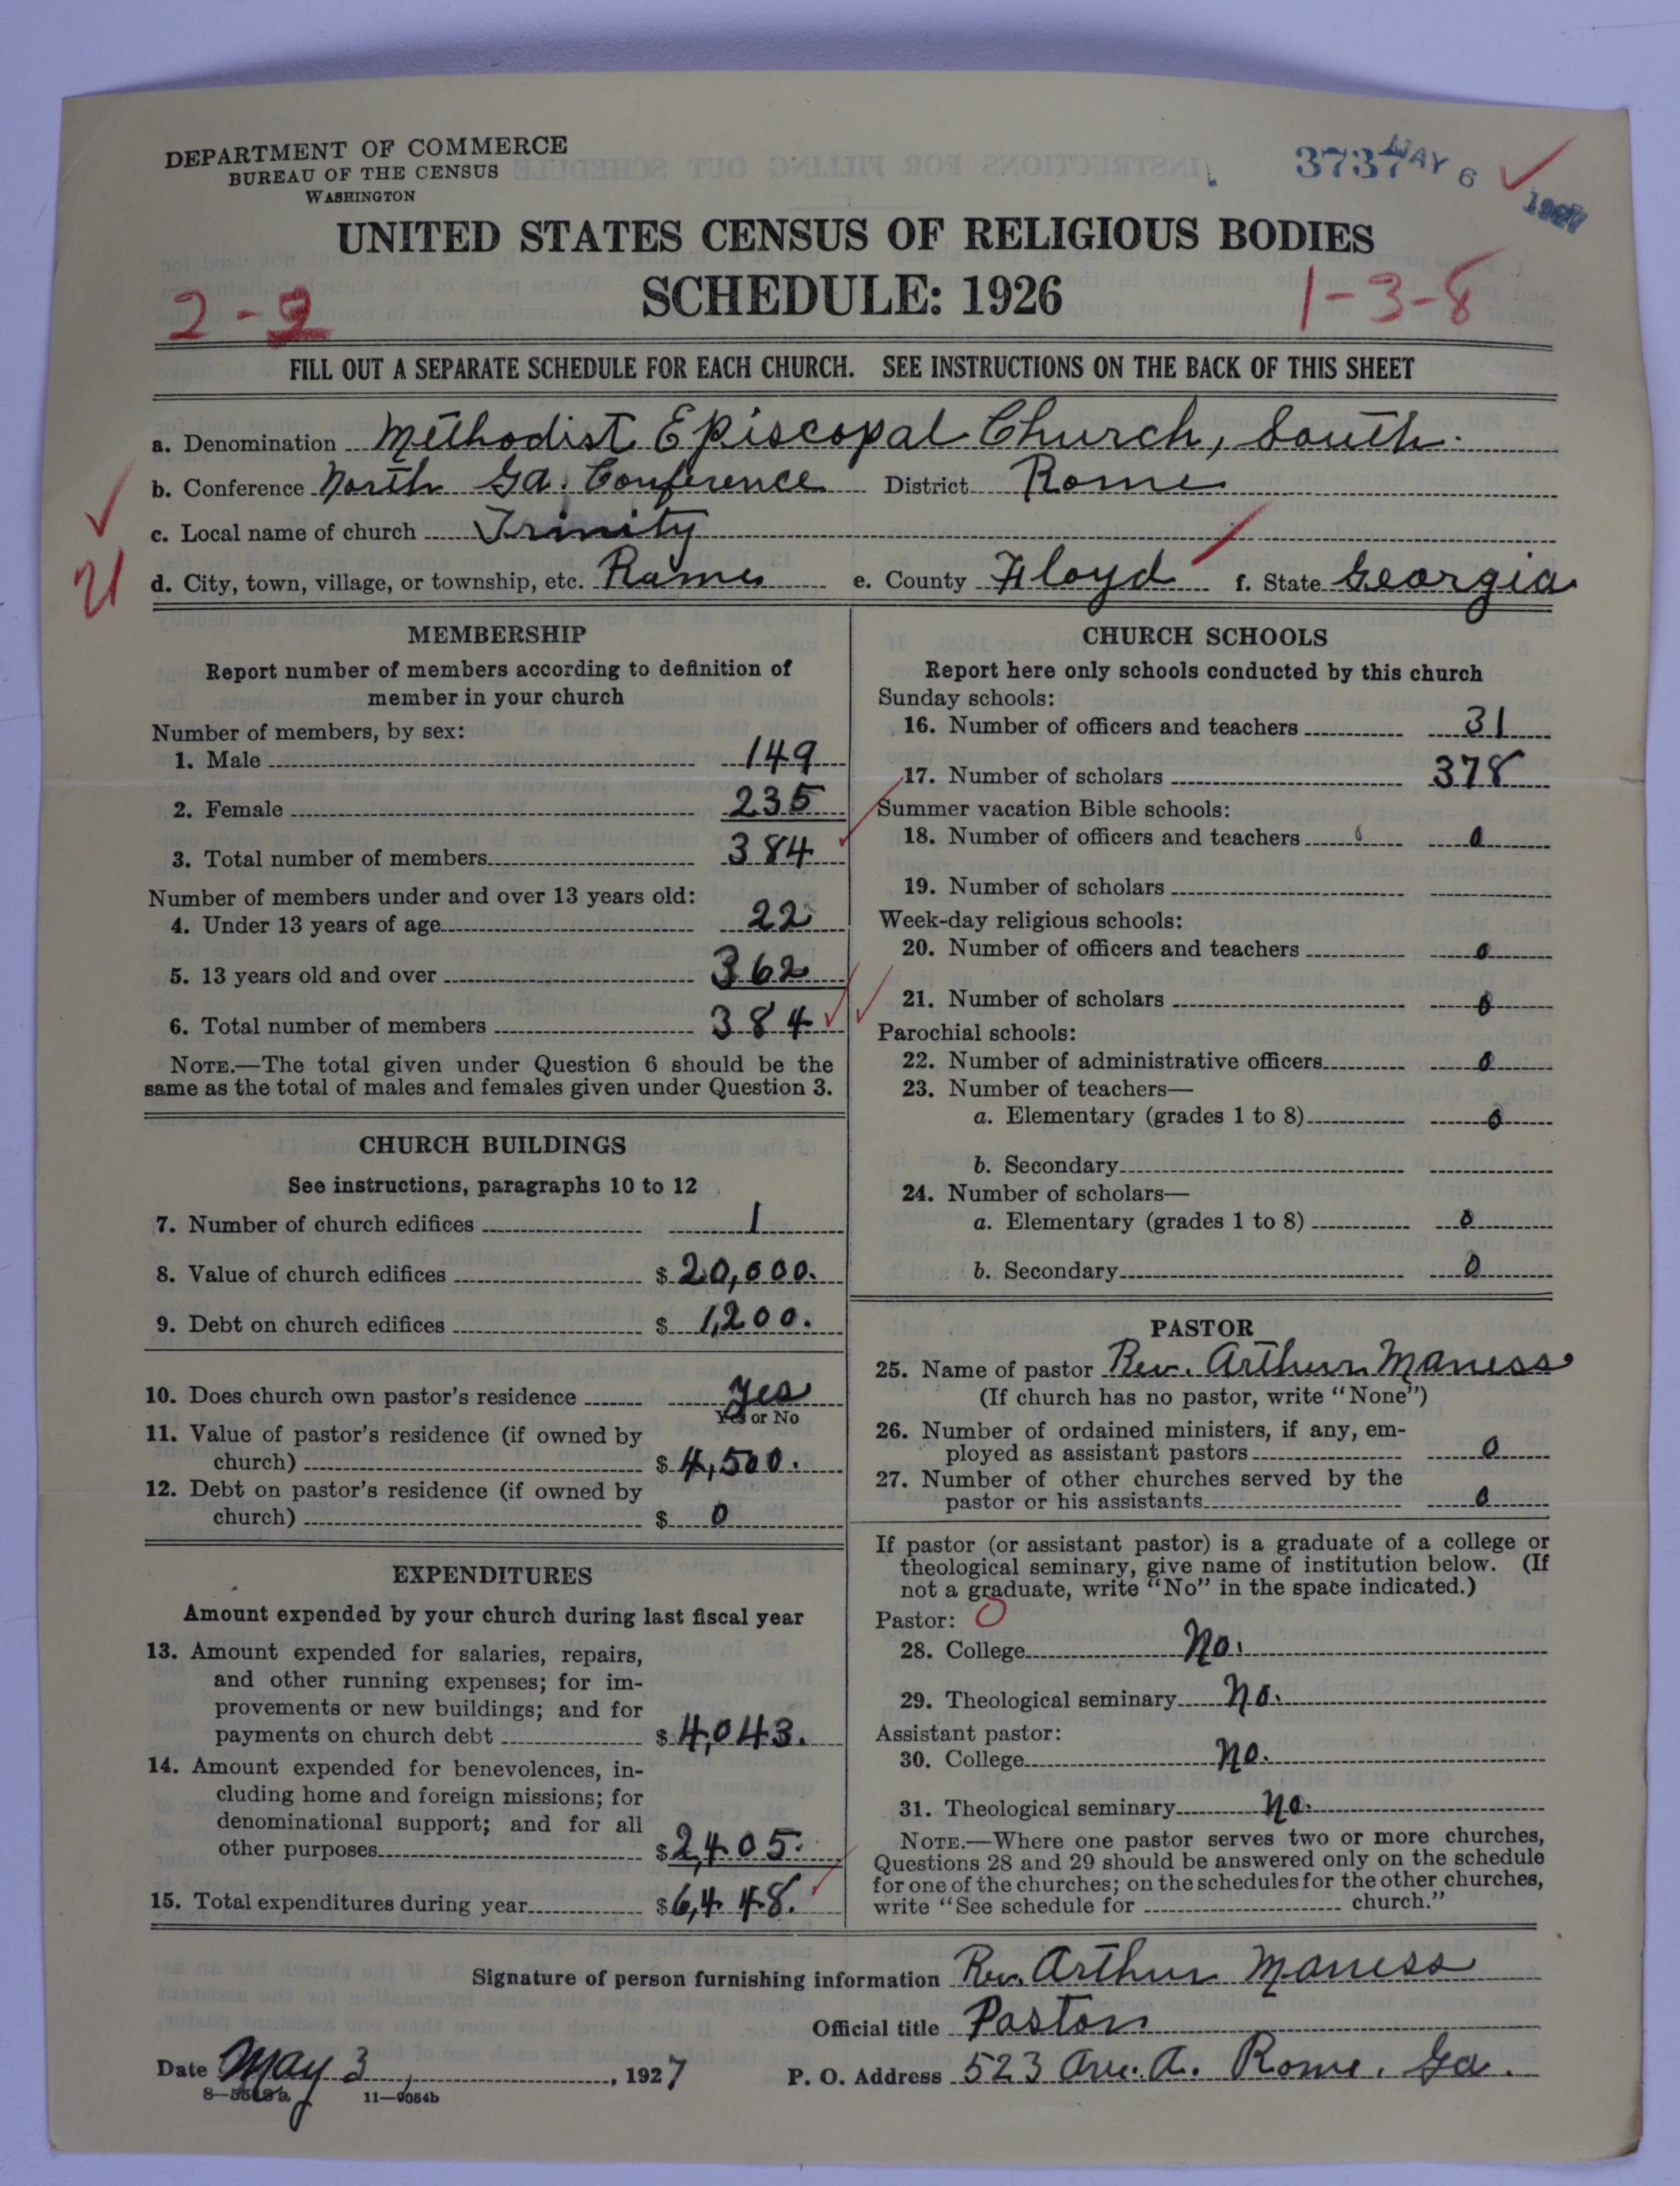 DEPARTMENT OF COMMERCE
BUREAU OF THE CENSUS
WASHINGTON
3737 MAY 6 1927
UNITED STATES CENSUS OF RELIGIOUS BODIES
SCHEDULE: 1926
2-9 1-3-8
FILL OUT A SEPARATE SCHEDULE FOR EACH CHURCH. SEE INSTRUCTIONS ON THE BACK OF THIS SHEET
a. Denomination Methodist Episcopal Church, South.
b. Conference North Ga. Conference District Rome
c. Local name of church Trinity
d. City, town, village, or township, etc. Rome e. County Floyd f. State Georgia
MEMBERSHIP
Report number of members according to definition of
member in your church
Number of members, by sex:
1. Male 149
2. Female 235
3. Total number of members 384
Number of members under and over 13 years old:
4. Under 13 years of age 22
5. 13 years old and over 362
6. Total number of members 384
NOTE.—The total given under Question 6 should be the
same as the total of males and females given under Question 3.
CHURCH BUILDINGS
See instructions, paragraphs 10 to 12
7. Number of church edifices 1
8. Value of church edifices $ 20,000.
9. Debt on church edifices $ 1,200.
10. Does church own pastor's residence Yes
Yes or No
11. Value of pastor's residence (if owned by
church) $ 4,500.
12. Debt on pastor's residence (if owned by
church) $ 0
EXPENDITURES
Amount expended by your church during last fiscal year
13. Amount expended for salaries, repairs,
and other running expenses; for im-
provements or new buildings; and for
payments on church debt $ 4,043.
14. Amount expended for benevolences, in-
cluding home and foreign missions; for
denominational support; and for all
other purposes $ 2,405.
15. Total expenditures during year $ 6,448.
CHURCH SCHOOLS
Report here only schools conducted by this church
Sunday schools:
16. Number of officers and teachers 31
17. Number of scholars 378
Summer vacation Bible schools:
18. Number of officers and teachers 0
19. Number of scholars
Week-day religious schools:
20. Number of officers and teachers 0
21. Number of scholars 0
Parochial schools:
22. Number of administrative officers 0
23. Number of teachers—
a. Elementary (grades 1 to 8) 0
b. Secondary
24. Number of scholars—
a. Elementary (grades 1 to 8) 0
b. Secondary 0
PASTOR
25. Name of pastor Rev. Arthur Maness
(If church has no pastor, write "None")
26. Number of ordained ministers, if any, em-
ployed as assistant pastors 0
27. Number of other churches served by the
pastor or his assistants 0
If pastor (or assistant pastor) is a graduate of a college or
theological seminary, give name of institution below. (If
not a graduate, write "No" in the space indicated.)
Pastor: O
28. College No.
29. Theological seminary No.
Assistant pastor:
30. College No.
31. Theological seminary No.
NOTE.—Where one pastor serves two or more churches,
Questions 28 and 29 should be answered only on the schedule
for one of the churches; on the schedules for the other churches,
write "See schedule for church."
Signature of person furnishing information Rev. Arthur Maness
Official title Pastor
Date May 3, 1927 P. O. Address 523 Ave. A. Rome, Ga.
11—9054b